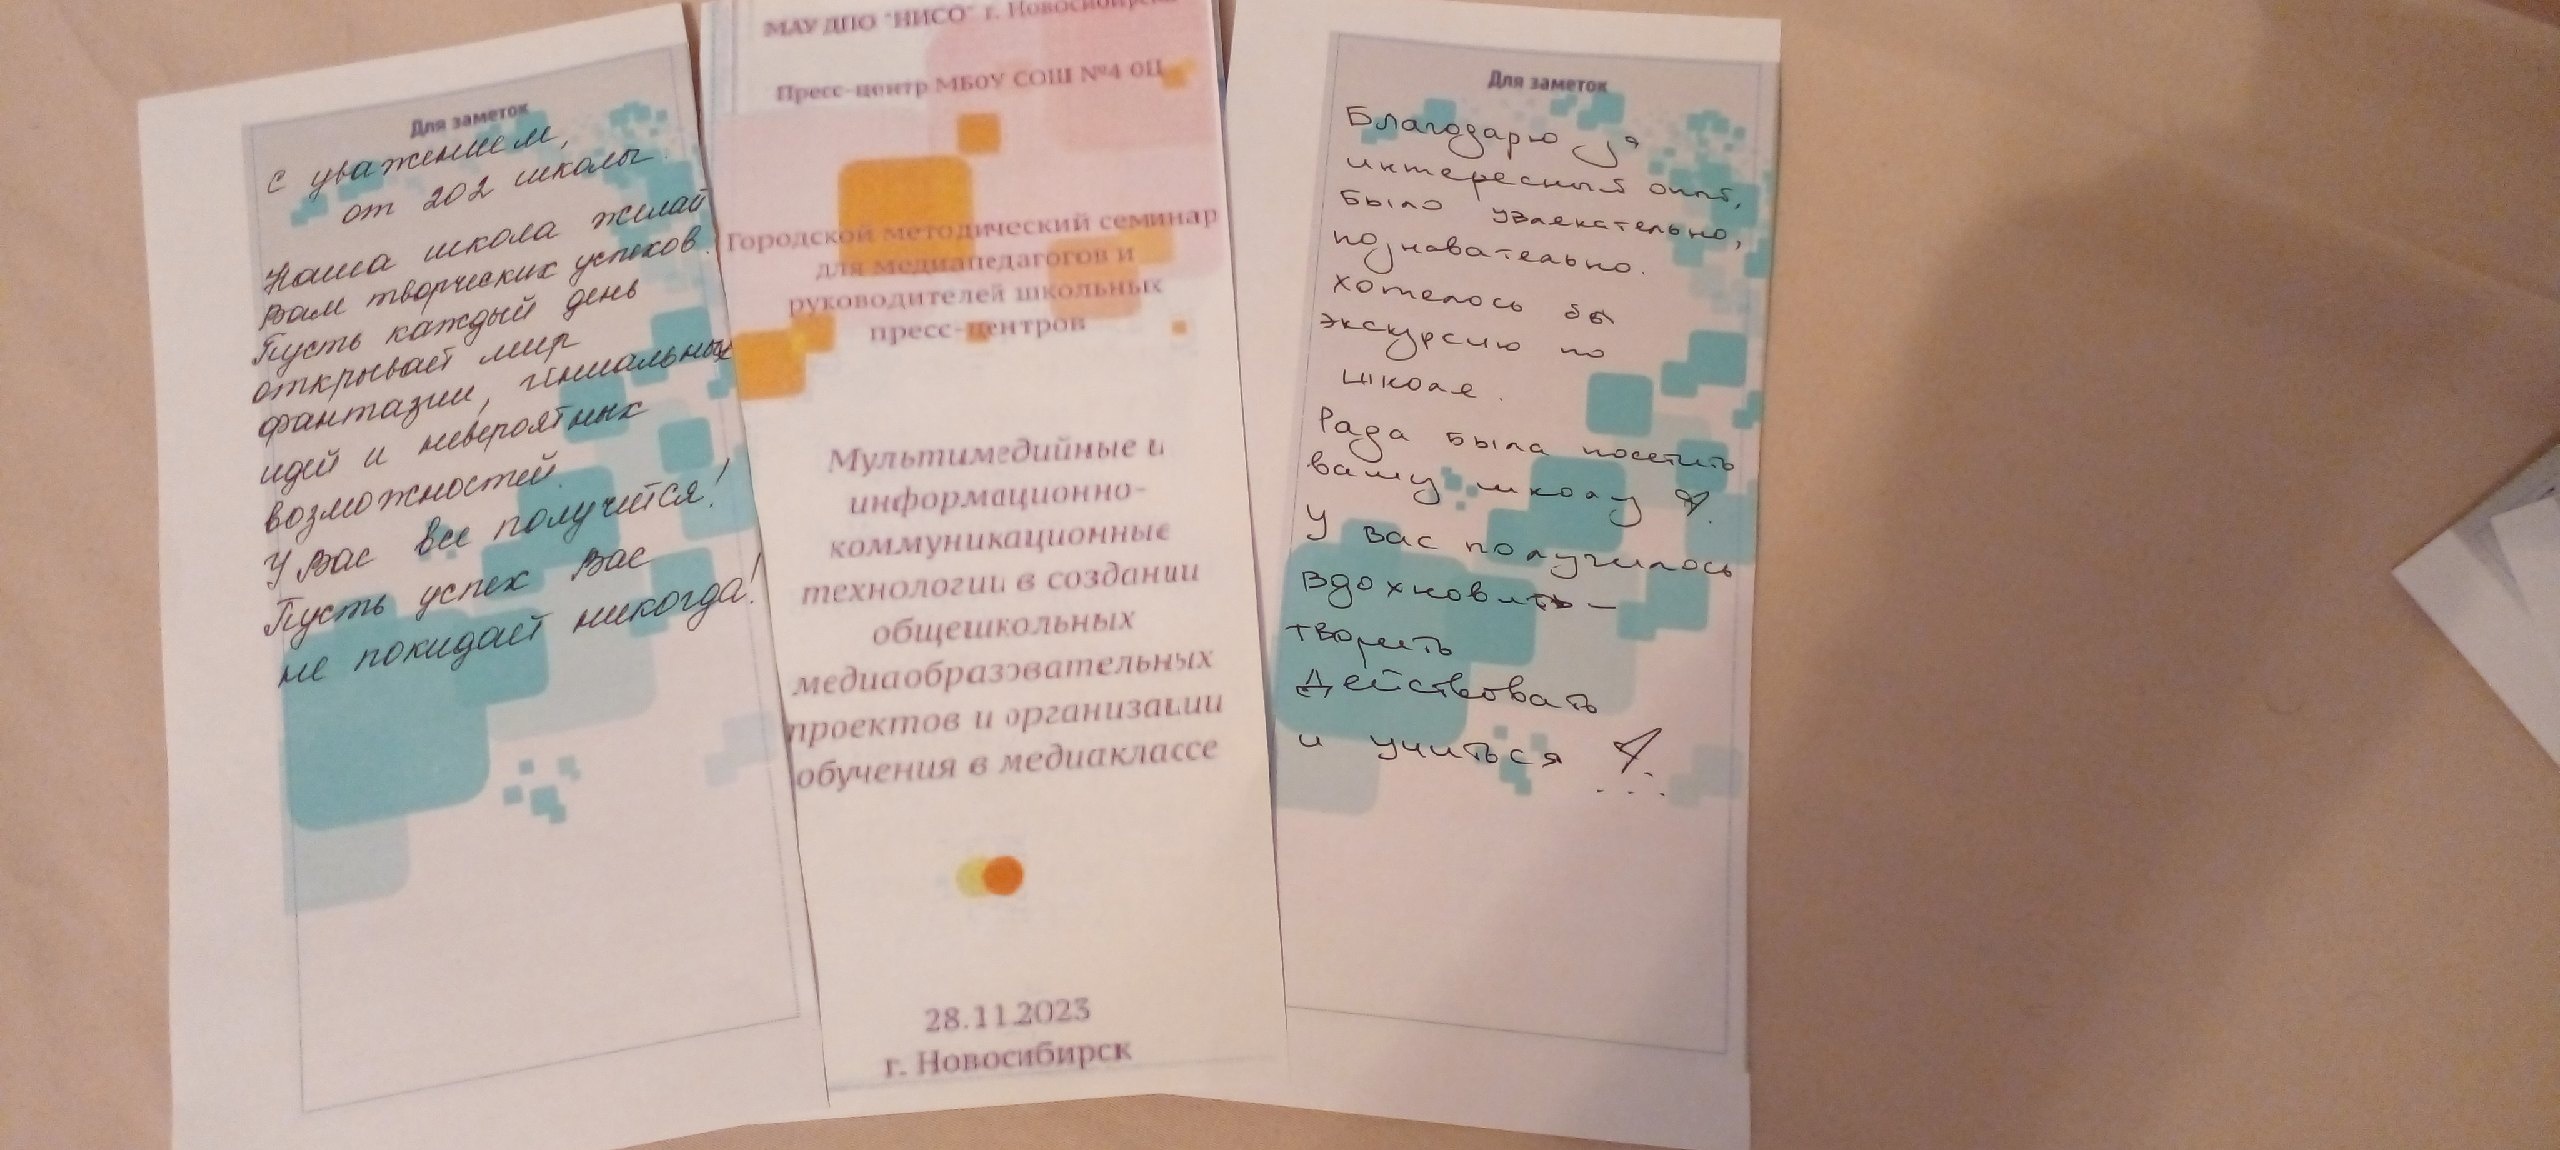 Для заметок
с уважением,
от 202 школы.
Наша школа желает
Вам творческих успехов.
Пусть каждый день
открывает мир
фантазии, гениальных
идей и невероятных
возможностей.
У Вас все получится!
Пусть успех Вас
не покидает никогда!
МАУ ДПО "НИСО" г. Новосибирска
Пресс-центр МБОУ СОШ №4 ОЦ
Городской методический семинар
для медиапедагогов и
руководителей школьных
пресс-центров
Мультимедийные и
информационно-
коммуникационные
технологии в создании
общешкольных
медиаобразовательных
проектов и организации
обучения в медиаклассе
28.11.2023
г. Новосибирск
Для заметок
Благодарю за
интересный опыт,
было увлекательно,
познавательно.
хотелось бы
экскурсию по
школе.
Рада была посетить
вашу школу
У вас получилось
вдохновить –
творить
Действовать
и учиться
...